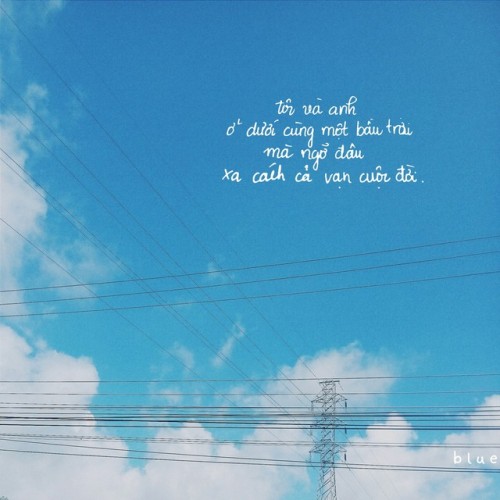 tôi và anh
ở dưới cùng một bầu trời
mà ngỡ đâu
xa cách cả vạn cuộc đời.
blue